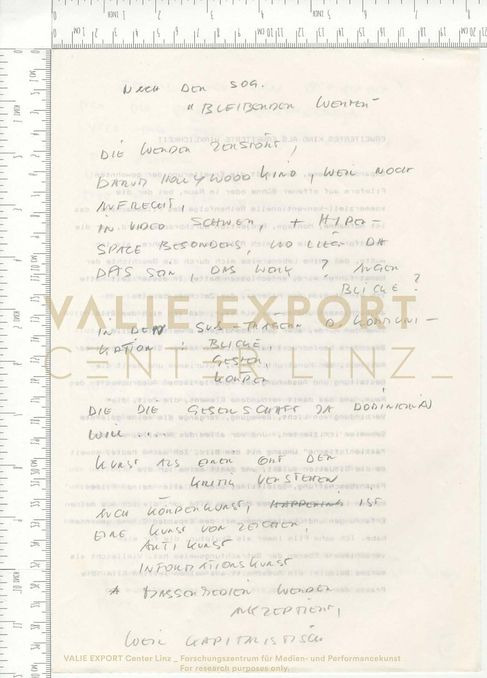 NACH DEN SOG.
"BLEIBENDEN WERTEN"
DIE WERDEN ZERSTÖRT!
DARUM HOLLYWOOD KINO, WEIL NOCH
AUFRECHT,
IN VIDEO SCHWER, + HYPER-
SPACE BESONDERS, WO LIEGT DA
DAS SEIN, DAS WORK? AUGEN
BLICKE?
VALIE EXPORT
CENTER LINZ_
IN DEN SUB-TRÄGERN D KOMMUNI-
KATION: BLICKE,
GESTEN,
KÖRPER
DIE DIE GESELLSCHAFT JA DOMINIEREN
WILL ....
KUNST ALS EINEN ORT DER
KRITIK VERSTEHEN
AUCH KÖRPERKUNST, HAPPENING IST
EINE KUNST VON ZEICHEN,
ANTI KUNST
INFORMATIONSKUNST
MASSENMEDIEN WERDEN
AKZEPTIERT,
WEIL KAPITALISTISCH
VALIE EXPORT Center Linz _ Forschungszentrum für Medien- und Performancekunst
For research purposes only.